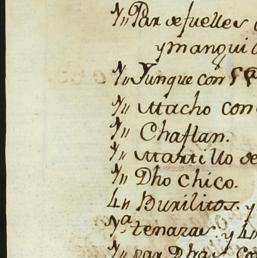 1„ Par de fuelles
y mangui
1„ Yunque con
1„ Macho con
1„ Chaflan.
1„ Martillo de
1„ Dho chico.
4„ Buxilitos. y
tenazas. y 4„
1„ par Dhas co